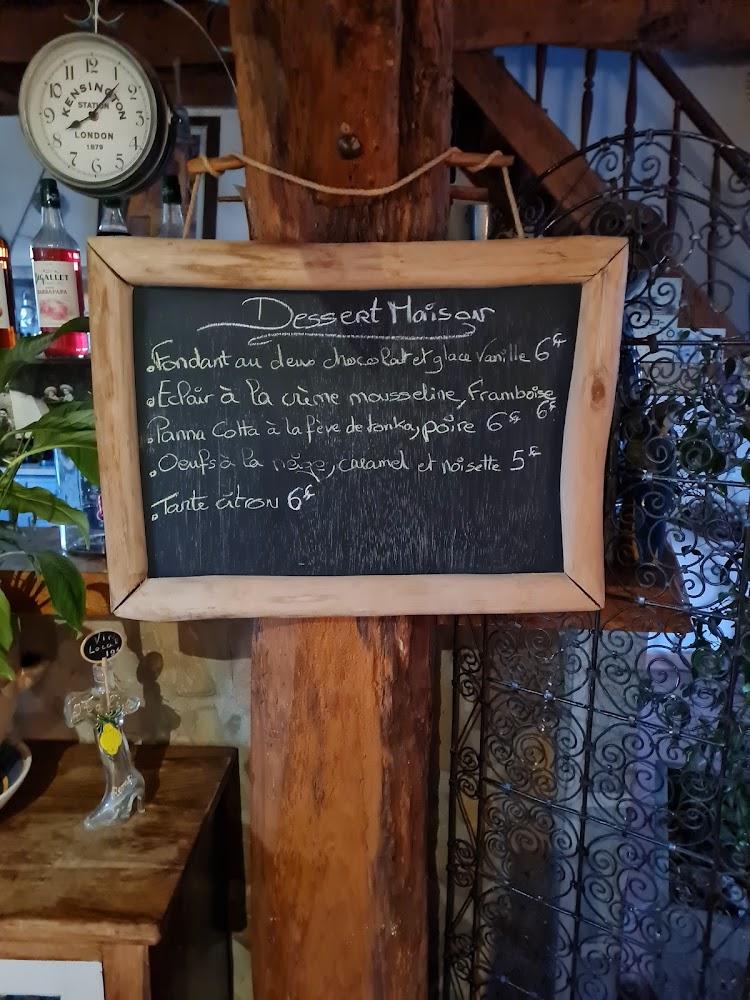 12
1
2
3
4
5
6
7
8
9
10
11
KENSINGTON
STATION
LONDON
1879
Dessert Maison
Fondant au deux chocolat et glace Vanille 6€
Eclair à la crème mousseline, Framboise
6€
Panna Cotta à la fève de tonka, poire 6€
Oeufs à la neige, caramel et noisette 5€
Tarte citron 6€